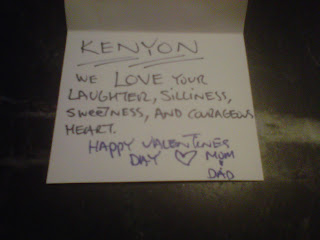 KENYON
WE LOVE YOUR
LAUGHTER, SILLINESS,
SWEETNESS, AND COURAGEOUS
HEART.
HAPPY VALENTINES
DAY ♡ MOM
&
DAD